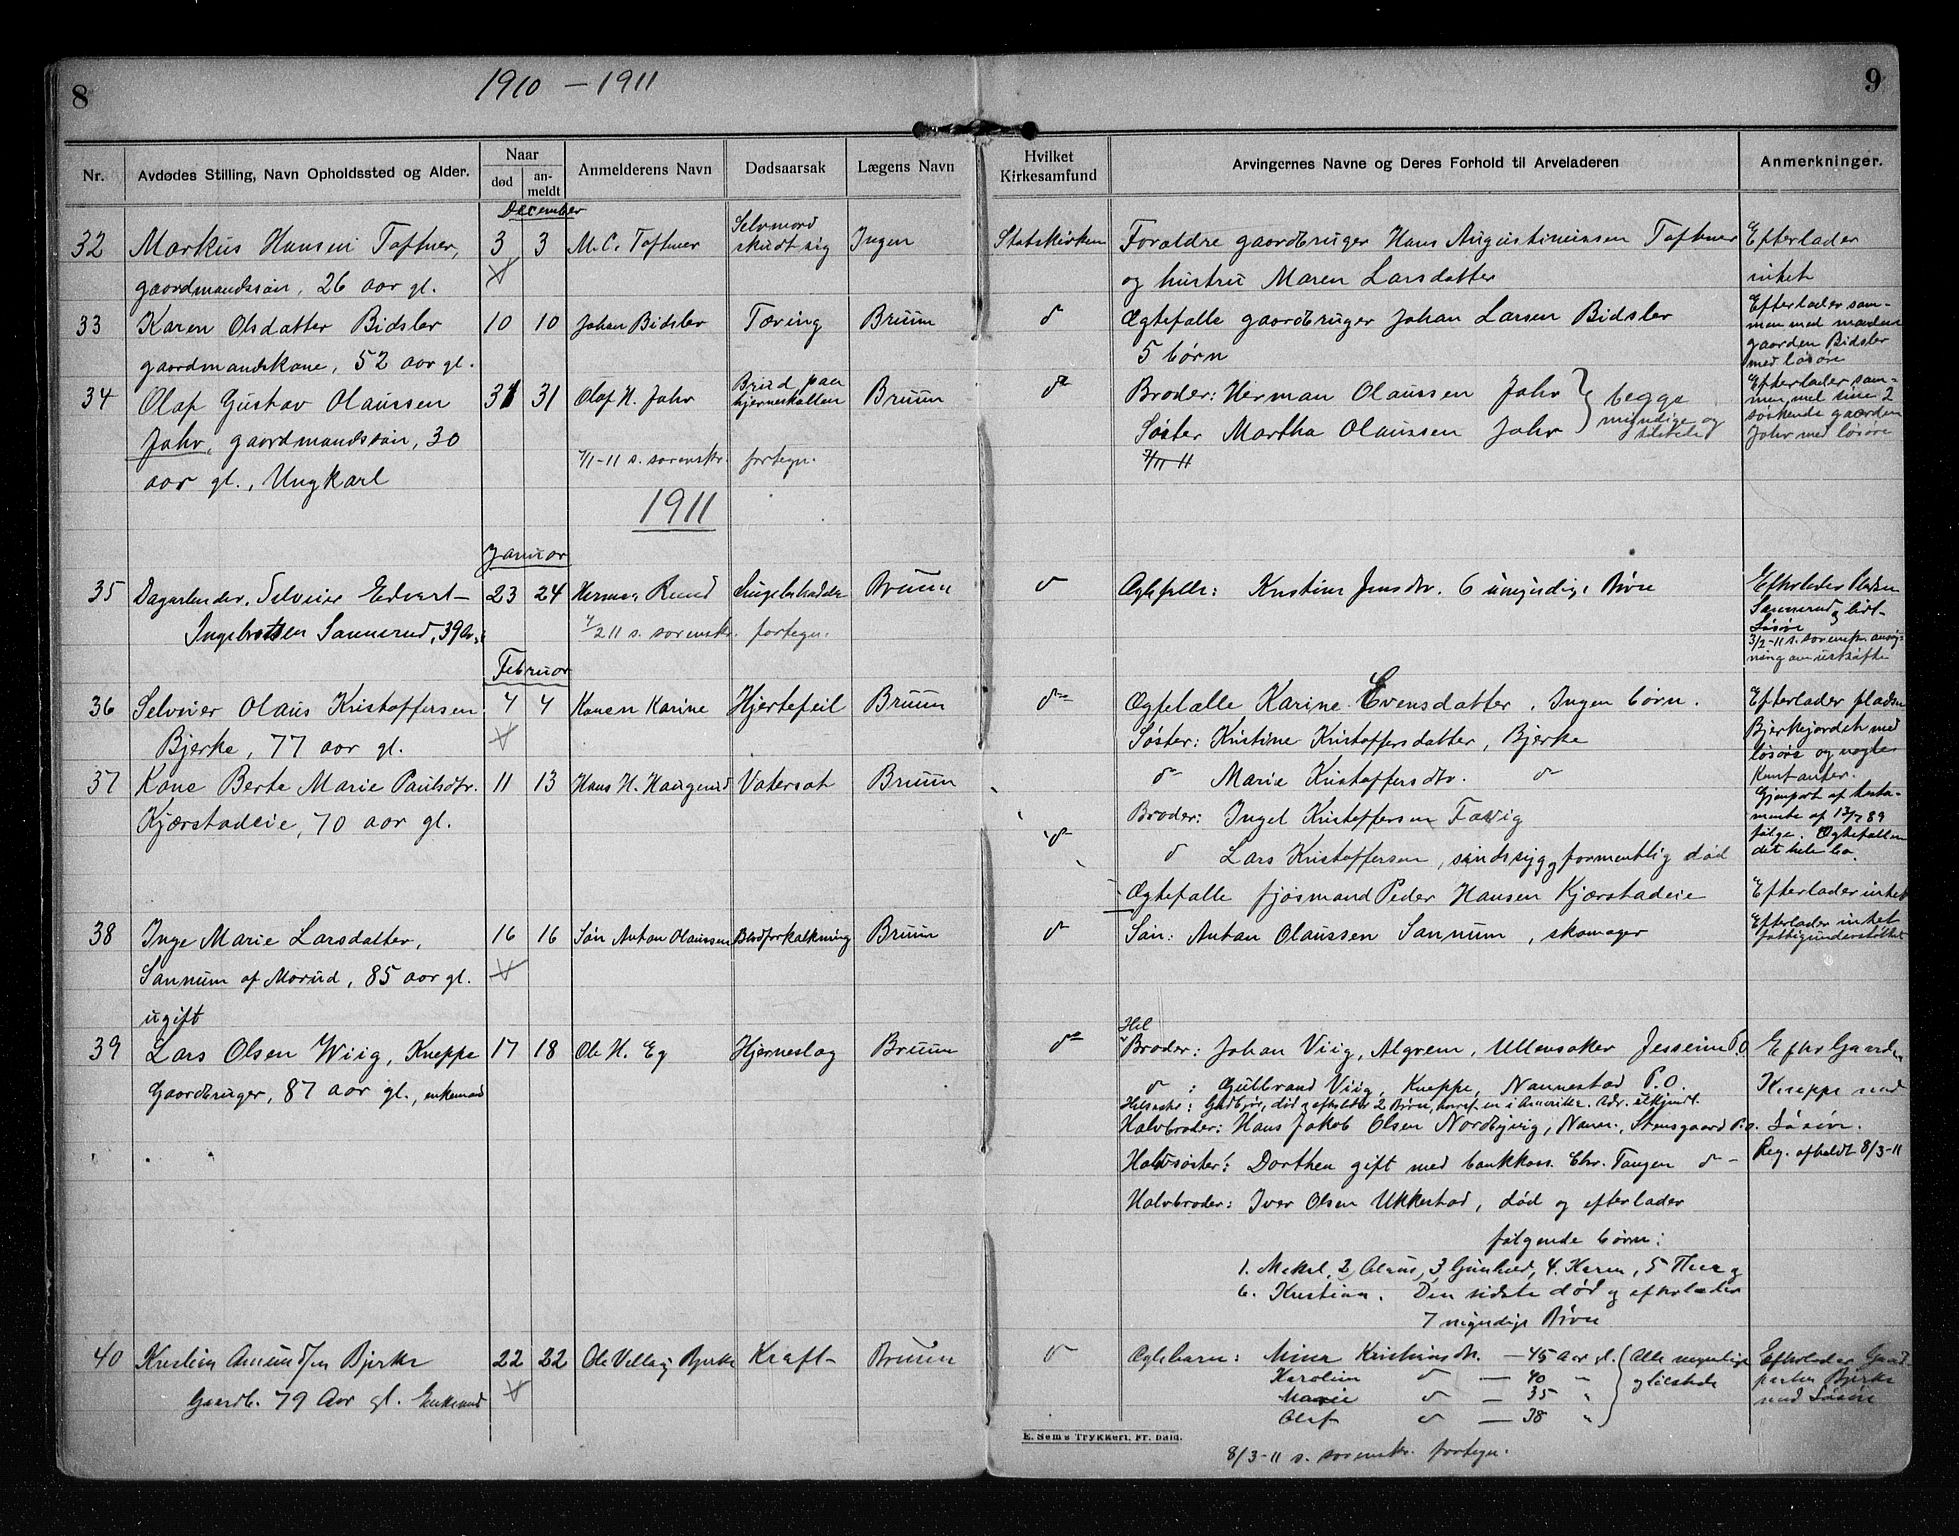 8
1910 – 1911
9
Nr.
Avdødes Stilling, Navn Opholdssted og Alder.
Naar
død
an-
meldt
Anmelderens Navn
Dødsaarsak
Lægens Navn
Hvilket
Kirkesamfund
Arvingernes Navne og Deres Forhold til Arveladeren
Anmerkninger.
December
32 Markus Hansen Toftner, 3 3 M. C. Toftner Selvmord Ingen Statskirken Forældre gaardbruger Hans Augustinussen Toftner Efterlader
skudt sig
gaardmandssøn, 26 aar gl. og hustru Maren Larsdatter intet
33 Karen Olsdatter Bidsler 10 10 Johan Bidsler Tæring Bruun d Ægtefælle gaardbruger Johan Larsen Bidsler Efterlader sam-
men med manden
gaardmandskone, 52 aar gl. 5 børn gaarden Bidsler
med løsøre
34 Olaf Gustav Olaussen 31 31 Olaf H. Jahr Brud paa Bruun do Broder: Herman Olaussen Jahr } begge Efterlader sam-
hjerneskallen men med sine 2
Jahr, gaardmandssøn, 30 Søster Martha Olaussen Jahr myndige og tilstede søskende gaarden
Jahr med løsøre
7/1-11 s. sorenskr. fortegn. 7/1 11
aar gl., Ungkarl
1911
Januar
35 Dagarbeider, Selveier Edvart 23 24 Herman Ruud Bruun d Ægtefælle: Kristine Jensdtr. 6 umyndige Børn Efterlader Pladsen
Ingebretsen Sannerud, 39 Aar 7/2 11 s. sorenskr. fortegn. Sannerud og lidt
Løsøre
3/2-11 s. sorenskr.
Februar
36 Selveier Olaus Kristoffersen 4 4 Konen Karine Hjertefeil Bruun do Ægtefælle Karine Evensdatter. Ingen børn. Efterlader pladsen
Bjerke, 77 aar gl. Søster: Kristine Kristoffersdatter, Bjerke Bjerkejordet med
løsøre og nogle
37 Kone Berte Marie Paulsdtr. 11 13 Hans H. Haugerud Vatersot Bruun do Marie Kristoffersdtr. do Kontanter.
Gjenpart af testa-
Kjærstadeie, 70 aar gl. Broder: Ingel Kristoffersen mente af 13/7 89
do følge. Ægtefællen
d Lars Kristoffersen, sindssyg, formentlig død det hele bo.
Ægtefælle fjøsmand Peder Hansen Kjærstadeie Efterlader intet
38 Inge Marie Larsdatter, 16 16 Søn Anton Olaussen Blodforkalkning Bruun d Søn: Anton Olaussen Sannum, skomager Efterlader intet
fattigunderstøttet
Sannum af Morud, 85 aar gl.
ugift
Hel
39 Lars Olsen Wiig, Kneppe 17 18 Ole H. Eg Hjerneslag Bruun do Broder: Johan Viig, Algrem, Ullensaker Jessheim P.O. Efterl. Gaarden
Gaardbruger, 87 aar gl., enkemand d : Gulbrand Viig, Kneppe, Nannestad P.O. Kneppe med
Helsøster: død og efterlader 2 Børn, hvoraf en i Amerika. Adr. ukjendt.
Halvbroder: Hans Jakob Olsen Nordbyvig, Nann., Stensgaard P.O. Løsøre.
Halvsøster: Dorthea gift med bankkass. Chr. Tangen d – Reg. afholdt 8/3-11
Halvbroder: Iver Olsen Ukkestad, død og efterlader
følgende børn:
1. Mekal, 2 Olaus, 3 Gunhild, 4. Karen, 5 Thea og
6. Kristian. Den sidste død og efterlader
7 myndige Børn
40 Kristian Amundsen Bjerke 22 22 Ole Bjerke Kræft Bruun d Ægtebarn: Mina Kristiansdtr. – 45 Aar gl. Alle myndige Efterlader Gaard
Karoline d – 40 " og tilstede parten Bjerke
Gaardb. 79 Aar gl. Enkemand Marie d – 35 " med Løsøre
Olaf d – 38 "
E. Sem's Trykkeri, Fr.hald.
8/3-11 s. sorenskr. fortegn.